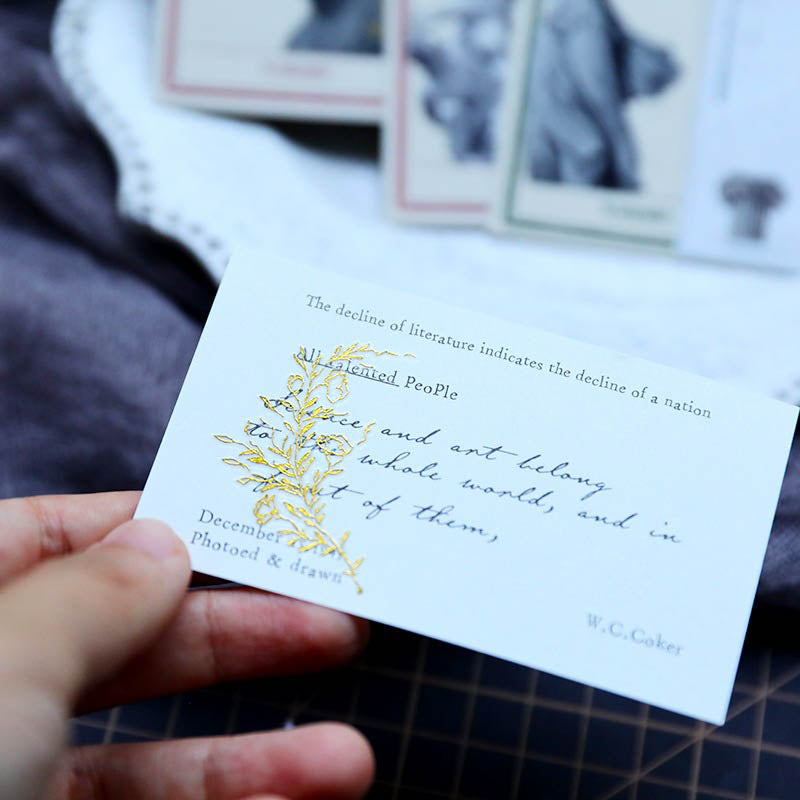 The decline of literature indicates the decline of a nation
All talented PeoPle
Science and art belong
to the whole world, and in
front of them,
December
Photoed & drawn
W.C.Coker